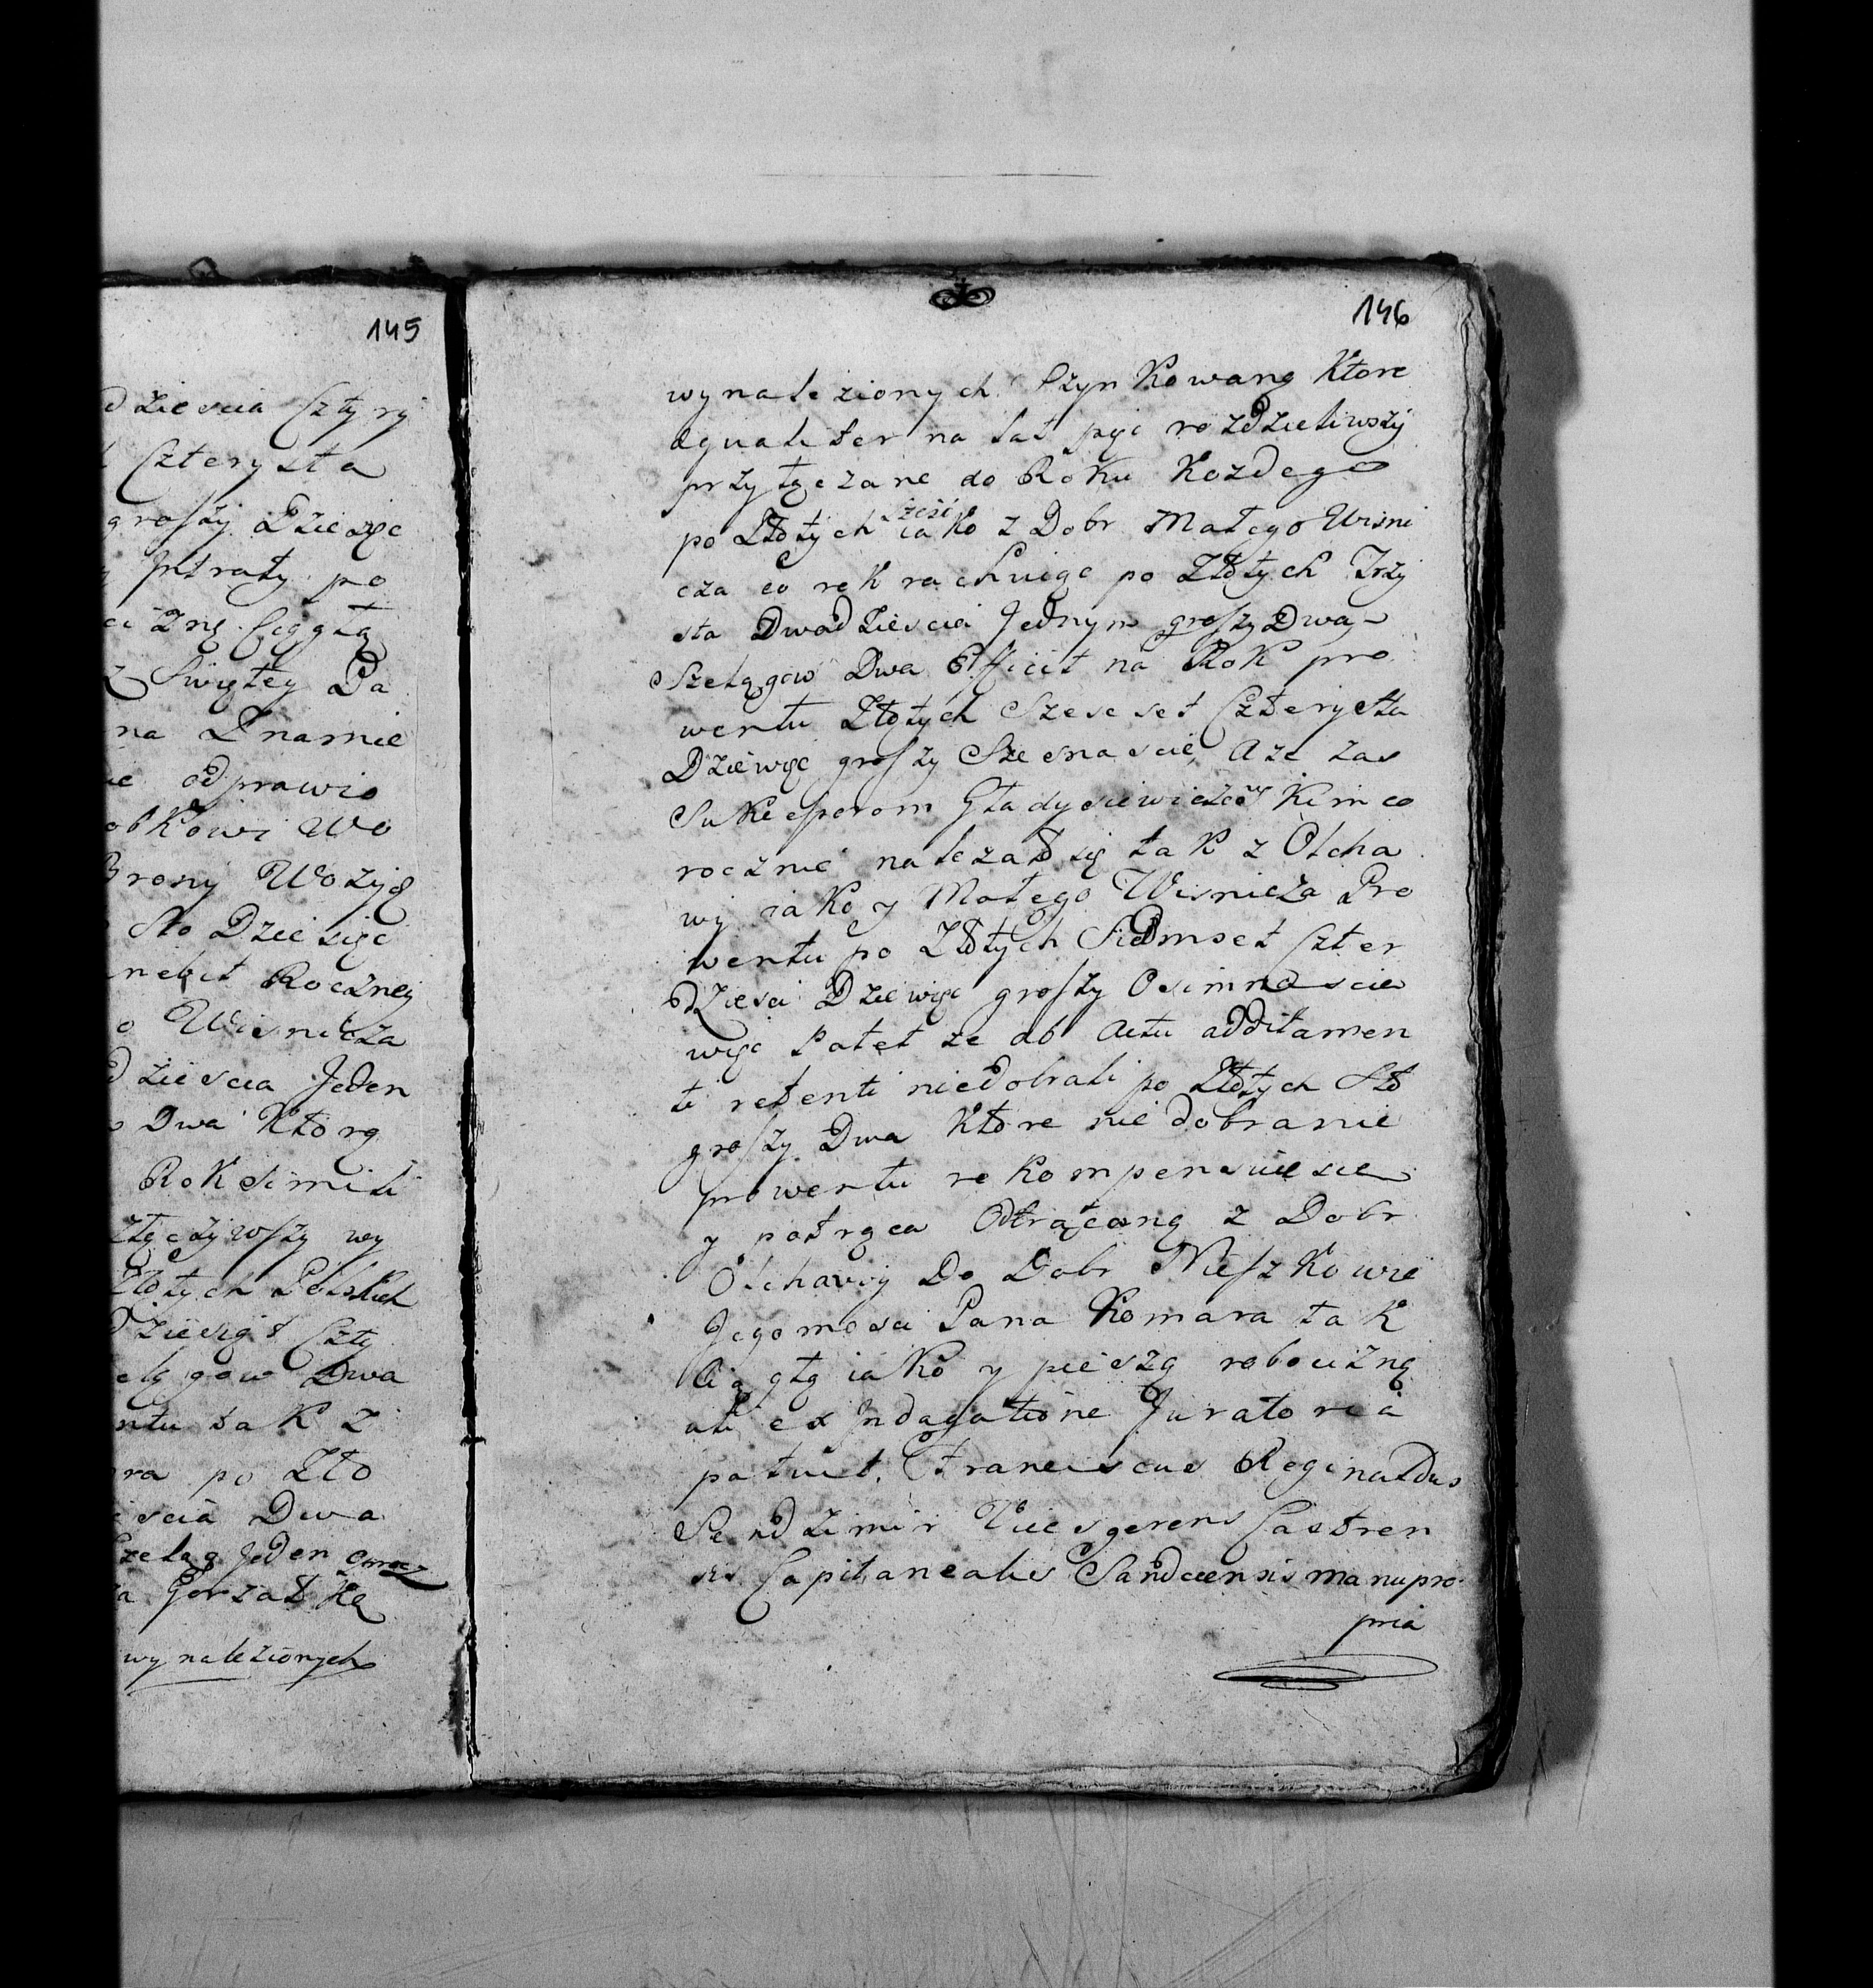 145
dziescia Cztyry
Czterysta
groszy Dziesięc
Intraty po
Ciągłą
z Swiętey Pa
na Znamie
odprawio
obkowi Wo
Brony Wozyć
Sto Dziesięc
Roczney
o Wisnicza
dziescia Jeden
Dwa Ktorą
Rok Simili
wy
Złotych Polskich
dziesiąt Czty
elągow Dwa
ntu tak z
ra po Zło
escia Dwa
Szeląg Jeden oraz
za Gorzałkę
wynalezionych
146
wynalezionych Szynkowaną Ktore
aequaliter na lat pięc rozdzieliwszy
przyłączane do Roku Kozdego
Sześć
po Złotych iako z Dobr Małego Wisni
cza co rok rachuiąc po Złotych Trzy
sta Dwadziescia Jednym groszy Dwa
Szelągow Dwa Efficit na Rok pro
wentu Złotych Szescset Czterysta
Dziewięc groszy Szesnascie, A ze zas
Sukcessorom Gładysiewiczowskim co
rocznie nalezało się tak z Olcha
wy iako y Małego Wisnicza Pro
wentu po Złotych Siedmset Czter
dziesci Dziewięc groszy Osimnascie
więc Patet ze ab Actu additamen
ti retenti niedobrali po Złotych Sto
groszy Dwa Ktore niedobranie
prowentu rekompensuie sie
y potrąca Odtrącaną z Dobr
Olchawy Do Dobr Nieszkowie
Jegomosci Pana Komara tak
Ciągłą iako y pieszą robocizną
uti ex Indagatione Juratoria
patuit. Franciscus Reginaldus
Sendzimir Vicesgerens Castren
sis Capitanealis Sandecensis manupro
pria